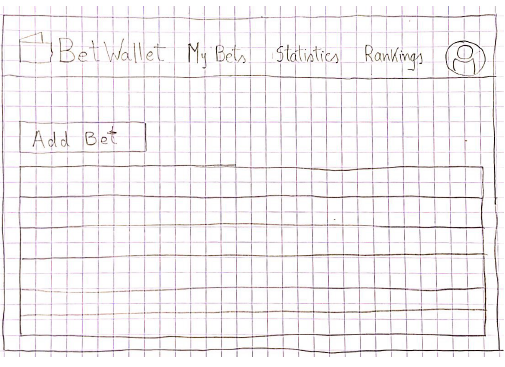 BetWallet My Bets Statistics Rankings
Add Bet